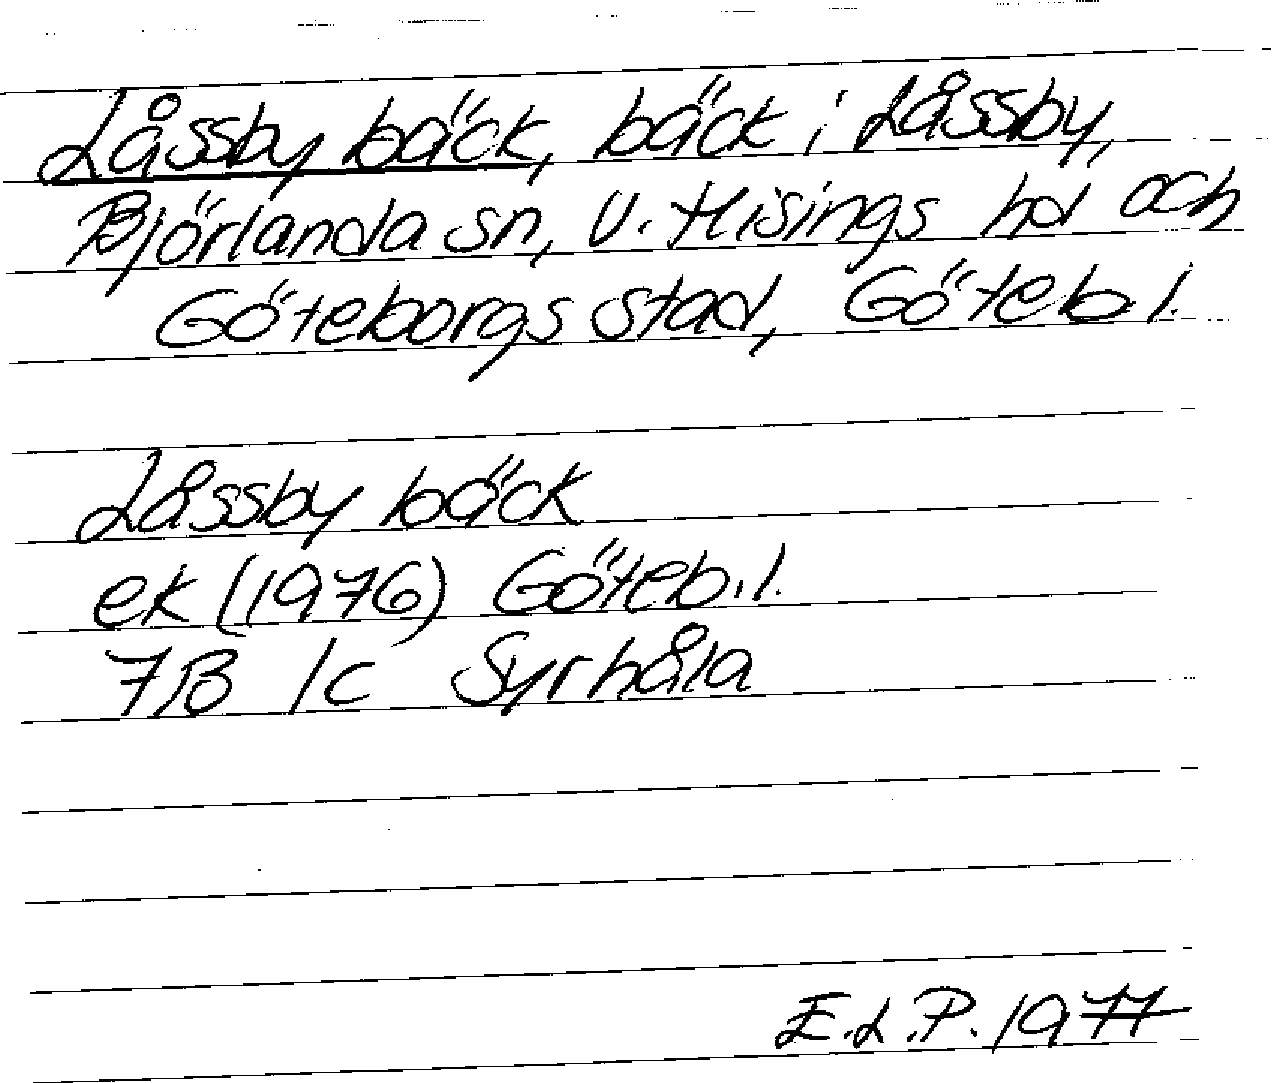 Låssby bäck, bäck i Låssby,
Björlanda sn, V. Hisings hd och
Göteborgs stad, Göteb. l.
Låssby bäck
ek (1976) Göteb. l.
7B 1c Syrhåla
E.L.P. 1977